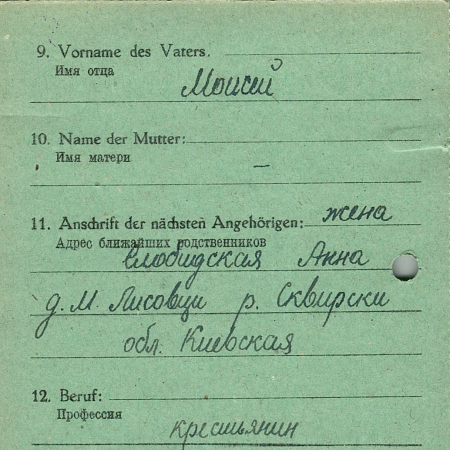 9. Vorname des Vaters.
Имя отца
Моисей
10. Name der Mutter:
Имя матери
—
11. Anschrift der nächsten Angehörigen: жена
Адрес ближайших родственников
Слободская Анна
д. М. Лисовци р. Сквирски
обл. Киевская
12. Beruf:
Профессия
крестьянин